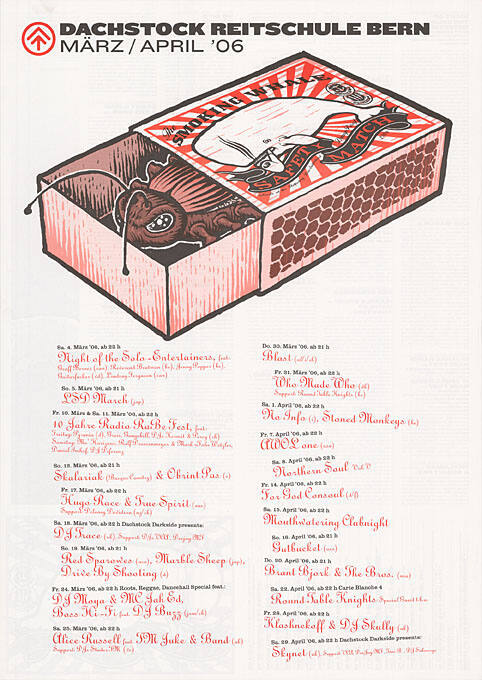 DACHSTOCK REITSCHULE BERN
MÄRZ / APRIL '06
The
SMOKING WHALE
SAFETY MATCH
Sa. 4. März '06, ab 22 h
Night of the Solo-Entertainers, feat.
So. 5. März '06, ab 21 h
LSD March (jap)
Fr. 10. März & Sa. 11. März '06, ab 22 h
10 Jahre Radio RaBe Fest, feat.
So. 12. März '06, ab 21 h
Skalariak (Basque Country) & Obrint Pas (e)
Fr. 17. März '06, ab 22 h
Hugo Race & True Spirit
Support: Delaney Davidson
Sa. 18. März '06, ab 22 h Dachstock Darkside presents:
DJ Trace (uk), Support: DJs VCA, Deejay MF
So. 19. März '06, ab 21 h
Red Sparowes (usa), Marble Sheep (jap),
Drive By Shooting
Fr. 24. März '06, ab 22 h Roots, Reggae, Dancehall Special feat.:
DJ Mayo & MC Jah Ed,
Boss Hi-Fi feat. DJ Buzz
Sa. 25. März '06, ab 22 h
Alice Russell feat. TM Juke & Band (uk)
Do. 30. März '06, ab 21 h
Blast
Fr. 31. März '06, ab 22 h
Who Made Who (dk)
Support: Round Table Knights (be)
Sa. 1. April '06, ab 22 h
No Info, Stoned Monkeys (be)
Fr. 7. April '06, ab 22 h
AWOL one (usa)
Sa. 8. April '06, ab 22 h
Northern Soul
Fr. 14. April '06, ab 22 h
For God Consoul
Sa. 15. April '06, ab 22 h
Mouthwatering Clubnight
So. 16. April '06, ab 21 h
Gutbucket (usa)
Do. 20. April '06, ab 21 h
Brant Bjork & The Bros. (usa)
Sa. 22. April '06, ab 22 h Carte Blanche 4
Round Table Knights Special Guest t.b.a.
Fr. 28. April '06, ab 22 h
Klashnekoff & DJ Skully (uk)
Sa. 29. April '06, ab 22 h Dachstock Darkside presents:
Skynet (uk), Support: VCA, Deejay MF